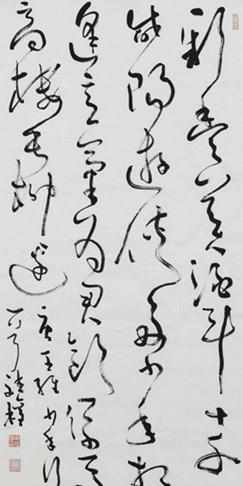 新豐美酒斗十千
咸陽遊俠多少年相
逢意氣為君飲系馬
高樓垂柳邊
唐王維少年行